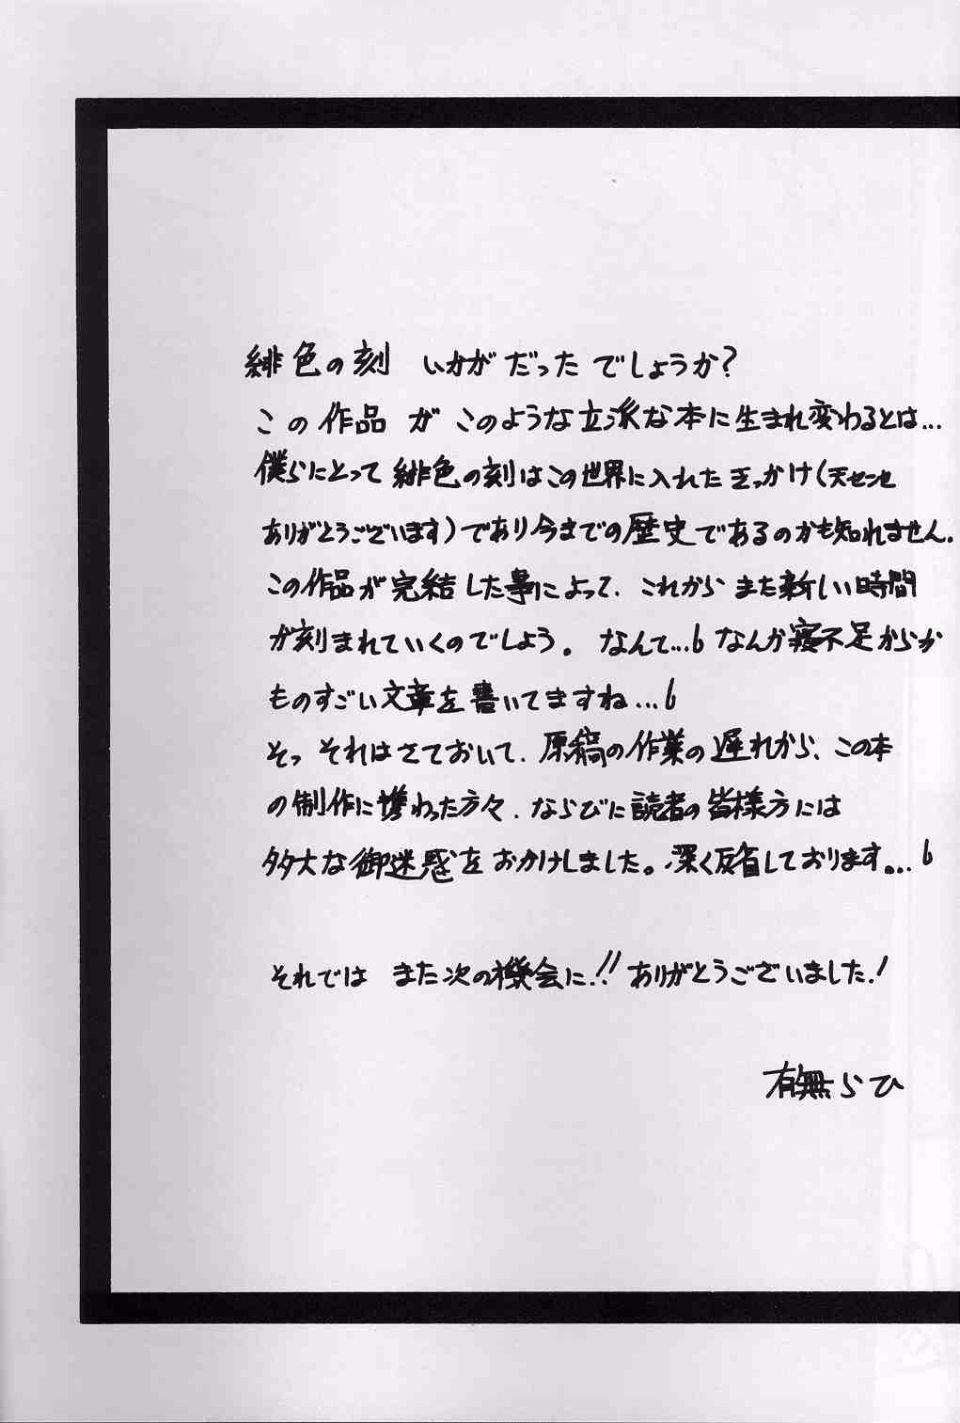 緋色の刻 いかがだったでしょうか?
この作品が このような立派な本に生まれ変わるとは...
僕らにとって 緋色の刻はこの世界に入れたきっかけ(天センセ
ありがとうございます)であり今までの歴史であるのかも知れません.
この作品が完結した事によって. これから また新しい時間
が刻まれていくのでしょう。 なんて... なんか寝不足からか
ものすごい文章を書いてますね...
そっ それはさておいて. 原稿の作業の遅れから、この本
の制作に携わった方々. ならびに読者の皆様方には
多大な御迷惑をおかけしました。深く反省しております...
それでは また次の機会に!! ありがとうございました!
有無らひ